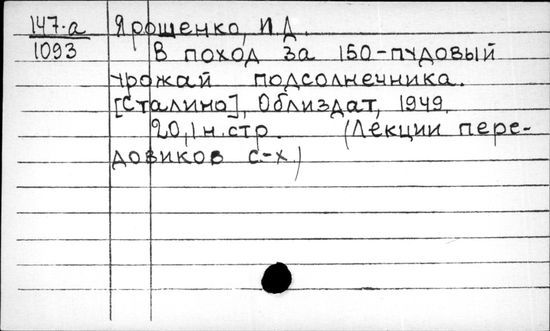 147-а Ярошенко, И.Д.
1093 В поход за 150-пудовый
урожай подсолнечника.
[Сталино], Облиздат, 1949.
20,1 н. стр. (Лекции пере-
довиков с.-х.)